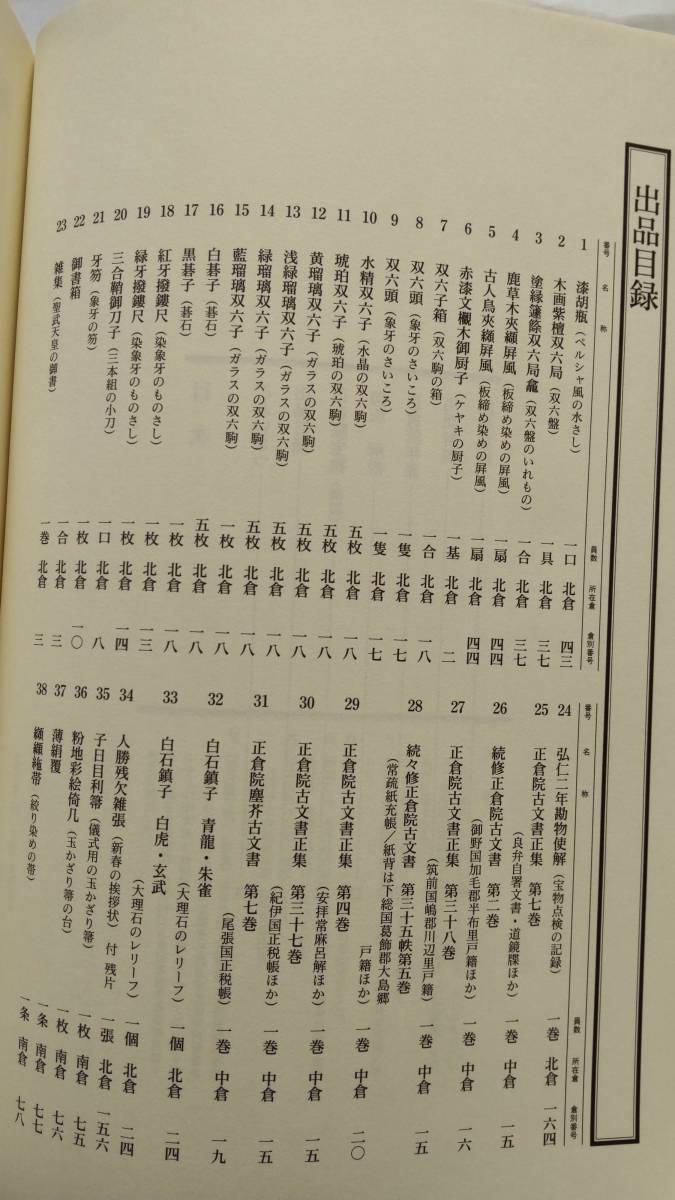 出品目録
番号 名称 員数 所在倉 倉別番号
1 漆胡瓶（ペルシャ風の水さし） 一口 北倉 四三
2 木画紫檀双六局（双六盤） 一具 北倉 三七
3 塗縁籧篨双六局龕（双六盤のいれもの） 一合 北倉 三七
4 鹿草木夾纈屏風（板締め染めの屏風） 一扇 北倉 四四
5 古人鳥夾纈屏風（板締め染めの屏風） 一扇 北倉 四四
6 赤漆文欟木御厨子（ケヤキの厨子） 一基 北倉 二
7 双六子箱（双六駒の箱） 一合 北倉 一八
8 双六頭（象牙のさいころ） 一隻 北倉 一七
9 双六頭（象牙のさいころ） 一隻 北倉 一七
10 水精双六子（水晶の双六駒） 五枚 北倉 一八
11 琥珀双六子（琥珀の双六駒） 五枚 北倉 一八
12 黄瑠璃双六子（ガラスの双六駒） 五枚 北倉 一八
13 浅緑瑠璃双六子（ガラスの双六駒） 五枚 北倉 一八
14 緑瑠璃双六子（ガラスの双六駒） 五枚 北倉 一八
15 藍瑠璃双六子（ガラスの双六駒） 一枚 北倉 一八
16 白碁子（碁石） 五枚 北倉 一八
17 黒碁子（碁石） 一枚 北倉 一八
18 紅牙撥鏤尺（染象牙のものさし） 一枚 北倉 一三
19 緑牙撥鏤尺（染象牙のものさし） 一枚 北倉 一四
20 三合鞘御刀子（三本組の小刀） 一口 北倉 八
21 牙笏（象牙の笏） 一枚 北倉 一〇
22 御書箱 一合 北倉 三
23 雑集（聖武天皇の御書） 一巻 北倉 三
番号 名称 員数 所在倉 倉別番号
24 弘仁二年勘物使解（宝物点検の記録） 一巻 北倉 一六四
25 正倉院古文書正集 第七巻
（良弁自署文書・道鏡牒ほか） 一巻 中倉 一五
26 続修正倉院古文書 第二巻
（御野国加毛郡半布里戸籍ほか） 一巻 中倉 一六
27 正倉院古文書正集 第三十八巻
（筑前国嶋郡川辺里戸籍） 一巻 中倉 一五
28 続々修正倉院古文書 第三十五帙第五巻
（常疏紙充帳／紙背は下総国葛飾郡大島郷
戸籍ほか 一巻 中倉 二〇
29 正倉院古文書正集 第四巻
（安拝常麻呂解ほか） 一巻 中倉 一五
30 正倉院古文書正集 第三十七巻
（紀伊国正税帳ほか） 一巻 中倉 一五
31 正倉院塵芥古文書 第七巻
（尾張国正税帳） 一巻 中倉 一九
32 白石鎮子 青龍・朱雀
（大理石のレリーフ） 一個 北倉 二四
33 白石鎮子 白虎・玄武
（大理石のレリーフ） 一個 北倉 二四
34 人勝残欠雑張（新春の挨拶状） 付 残片 一張 北倉 一五六
35 子日目利箒（儀式用の玉かざり箒） 一枚 南倉 七五
36 粉地彩絵倚几（玉かざり箒の台） 一枚 南倉 七六
37 薄絹覆 一条 南倉 七七
38 纐纈絁帯（絞り染めの帯） 一条 南倉 七八